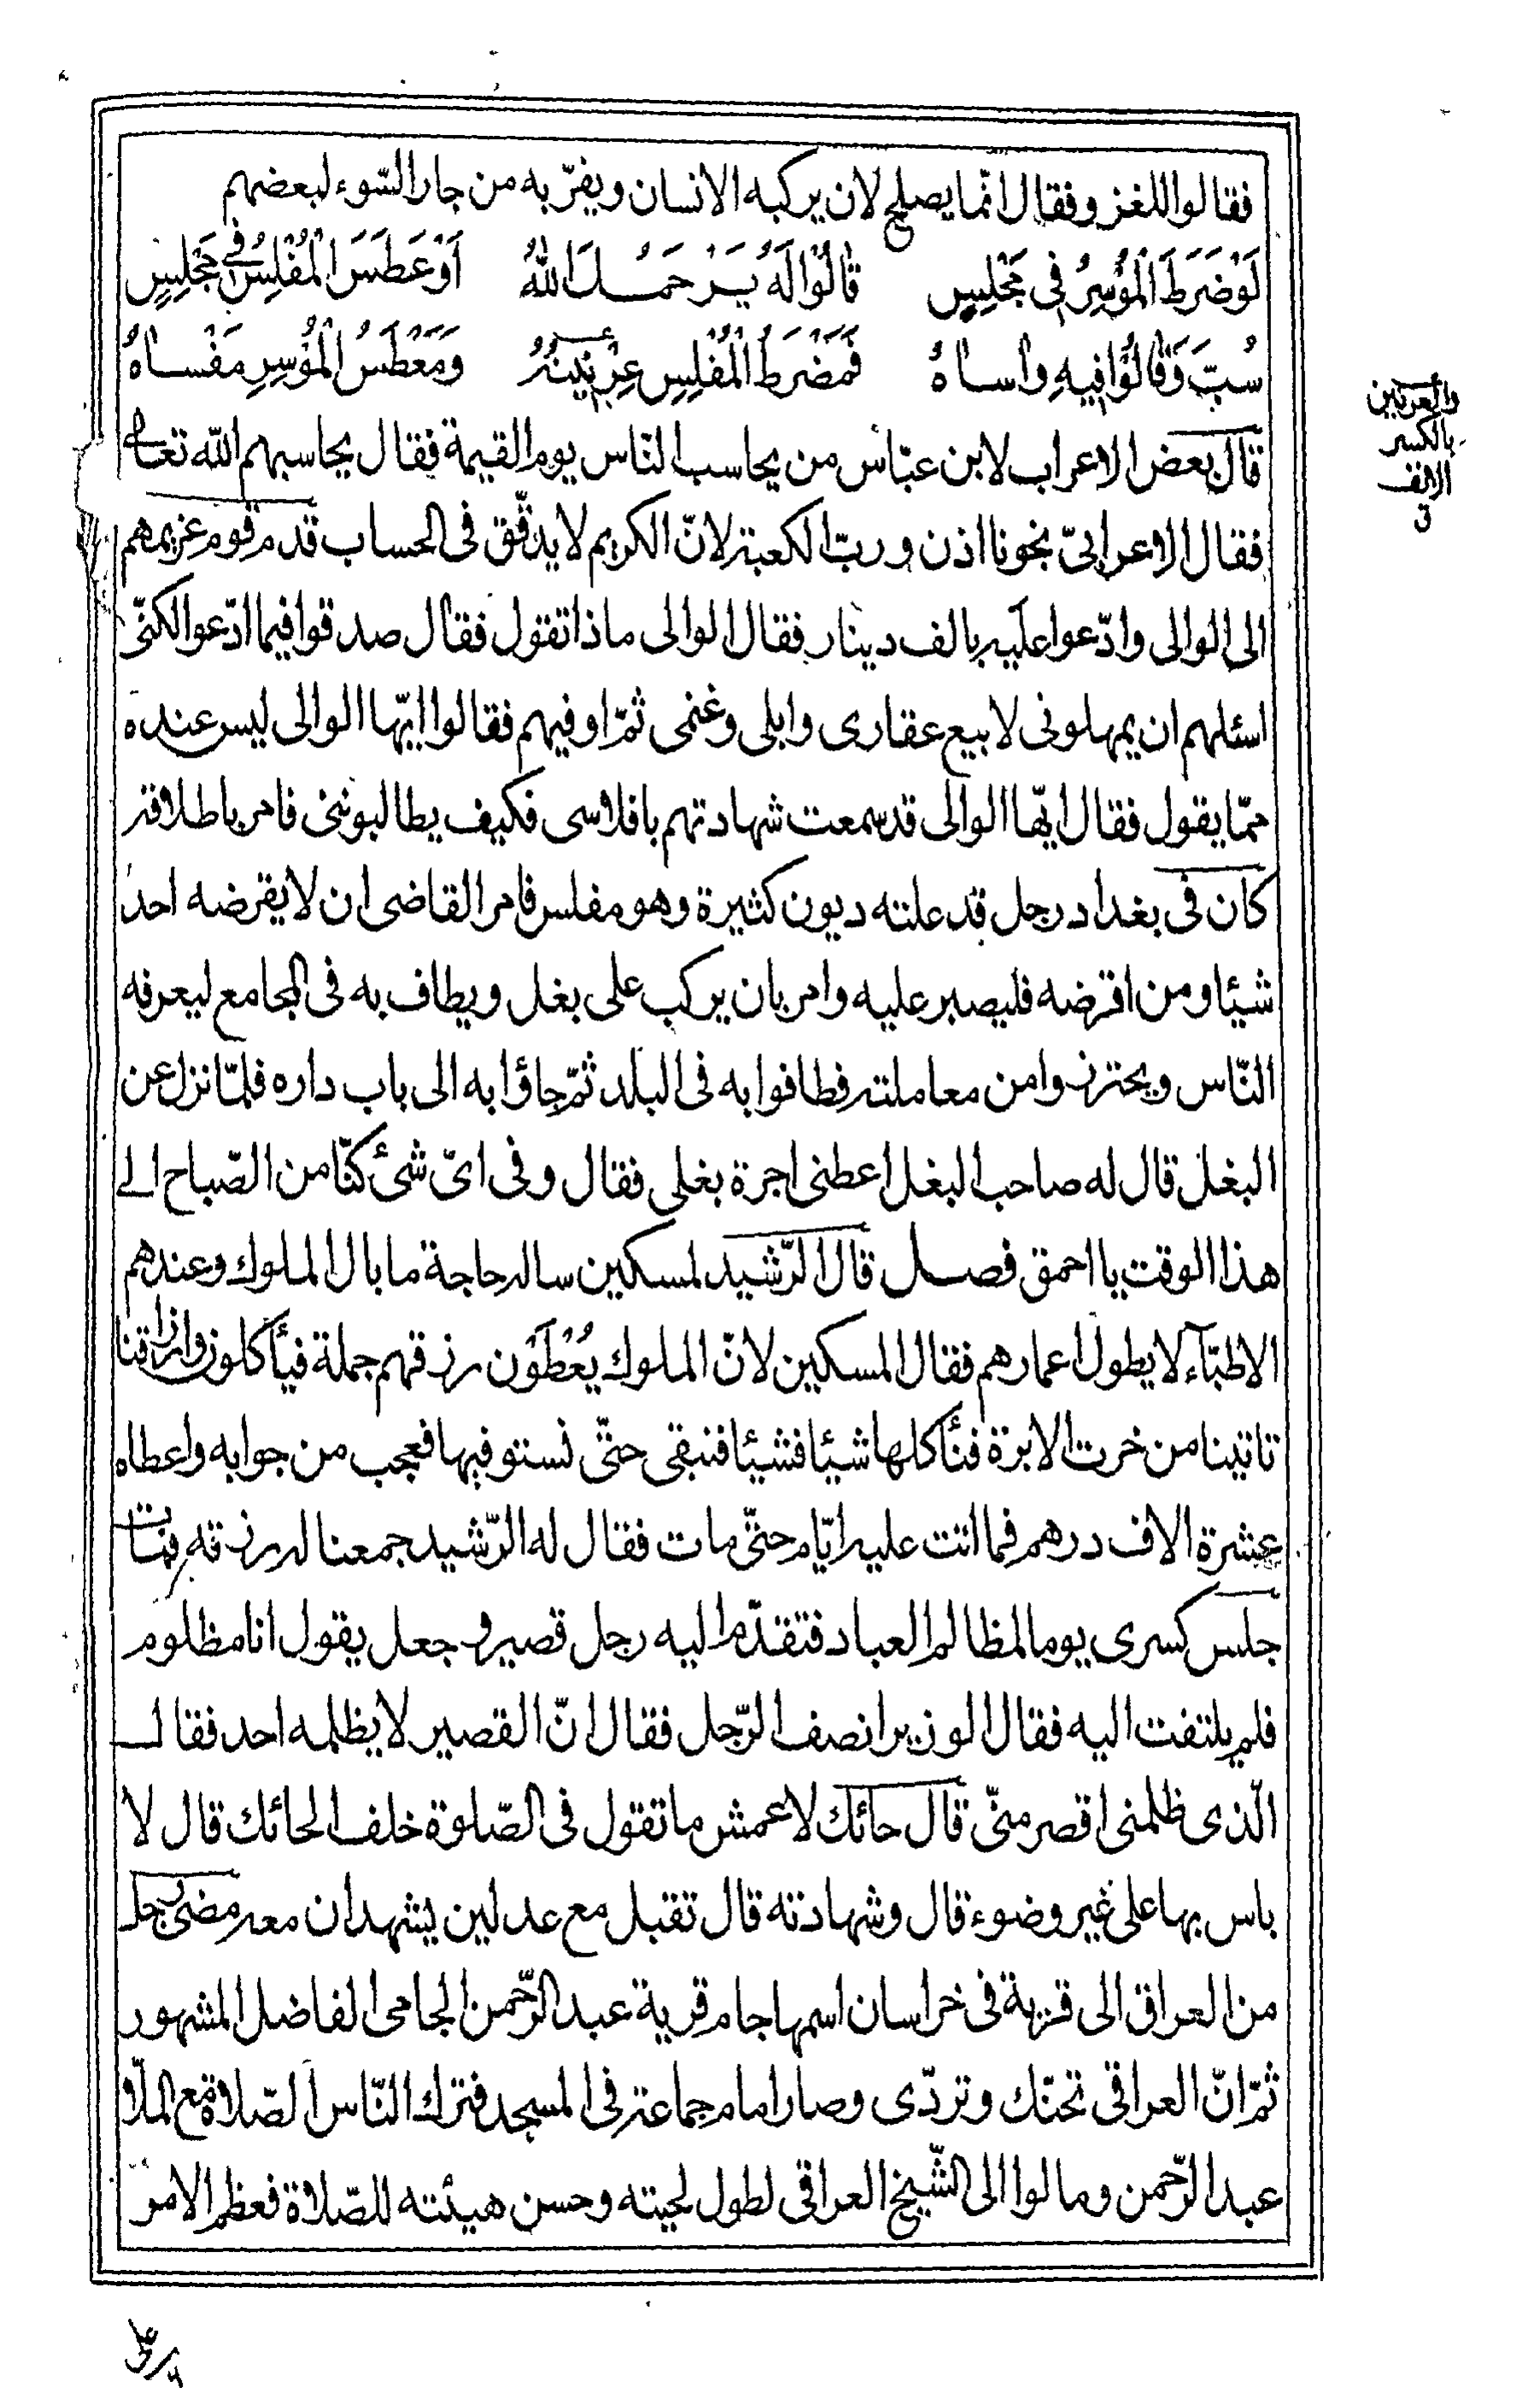 فقالوا للغزو فقال انّما يصلح لان يركبه الانسان ويفرّ به من جار السّوء لبعضهم
لَوْ ضَرَطَ الْمُوْسِرُ فِى مَجْلِسٍ قٰالُوْا لَهُ يَرْحَمُكَ اللهُ اَوْ عَطَسَ الْمُفْلِسُ فِى مَجْلِسٍ
سُبَّ وَقٰالُوْا فِيهِ مٰا سٰاهُ فَمَضْرَطُ الْمُفْلِسِ عِرْنِيْنُهُ وَمَعْطَسُ الْمُوْسِرِ مَفْسٰاهُ
والعرنين
بالكسر
الانف
ق
قال بعض الاعراب لابن عبّاس من يحاسب النّاس يوم القيمة فقال يحاسبهم اللّه تعالى
فقال الاعرابىّ نجونا اذن وربّ الكعبة لانّ الكريم لا يدقّق فى الحساب قدم قوم غريمهم
الى الوالى وادّعوا عليه بالف دينار فقال الوالى ما ذا تقول فقال صدقوا فيما ادّعوا لكنّى
اسئلهم ان يمهلونى لابيع عقارى وابلى وغنمى ثمّ اوفيهم فقالوا ايّها الوالى ليس عنده
ممّا يقول فقال ايّها الوالى قد سمعت شهادتهم بافلاسى فكيف يطالبوننى فامر باطلاقه
كان فى بغداد رجل قد علته ديون كثيرة وهو مفلس فامر القاضى ان لا يقرضه احد
شيئا ومن اقرضه فليصبر عليه وامر بان يركب على بغل ويطاف به فى المجامع ليعرفه
النّاس ويحترزوا من معاملته فطافوا به فى البلد ثمّ جاؤا به الى باب داره فلمّا نزل عن
البغل قال له صاحب البغل اعطنى اجرة بغلى فقال وفى اىّ شئ كنّا من الصّباح الى
هذا الوقت يا احمق فصل قال الرّشيد لمسكين ساله حاجة ما بال الملوك وعندهم
الاطبّآء لا يطول اعمارهم فقال المسكين لانّ الملوك يُعْطَوْن رزقهم جملة فيأكلون وارزاقنا
تاتينا من خرت الابرة فنأكلها شيئا فشيئا فنبقى حتّى نستوفيها فعجب من جوابه واعطاه
عشرة الاف درهم فما اتت عليه ايّام حتّى مات فقال له الرّشيد جمعنا له رزقه فمات
جلس كسرى يوما لمظالم العباد فتقدّم اليه رجل قصير وجعل يقول انا مظلوم
فلم يلتفت اليه فقال الوزير انصف الرّجل فقال انّ القصير لا يظلمه احد فقال
الّذى ظلمنى اقصر منّى قال حائك لاعمش ما تقول فى الصّلوة خلف الحائك قال لا
باس بها على غير وضوء قال وشهادته قال تقبل مع عدلين يشهدان معه مضى رجل
من العراق الى قرية فى خراسان اسمها جام قرية عبد الرّحمن الجامى الفاضل المشهور
ثمّ انّ العراقى تحنّك وتردّى وصار امام جماعة فى المسجد فترك النّاس الصّلاة مع الملّا
عبد الرّحمن ومالوا الى الشّيخ العراقى لطول لحيته وحسن هيئته للصّلاة فعظم الامر